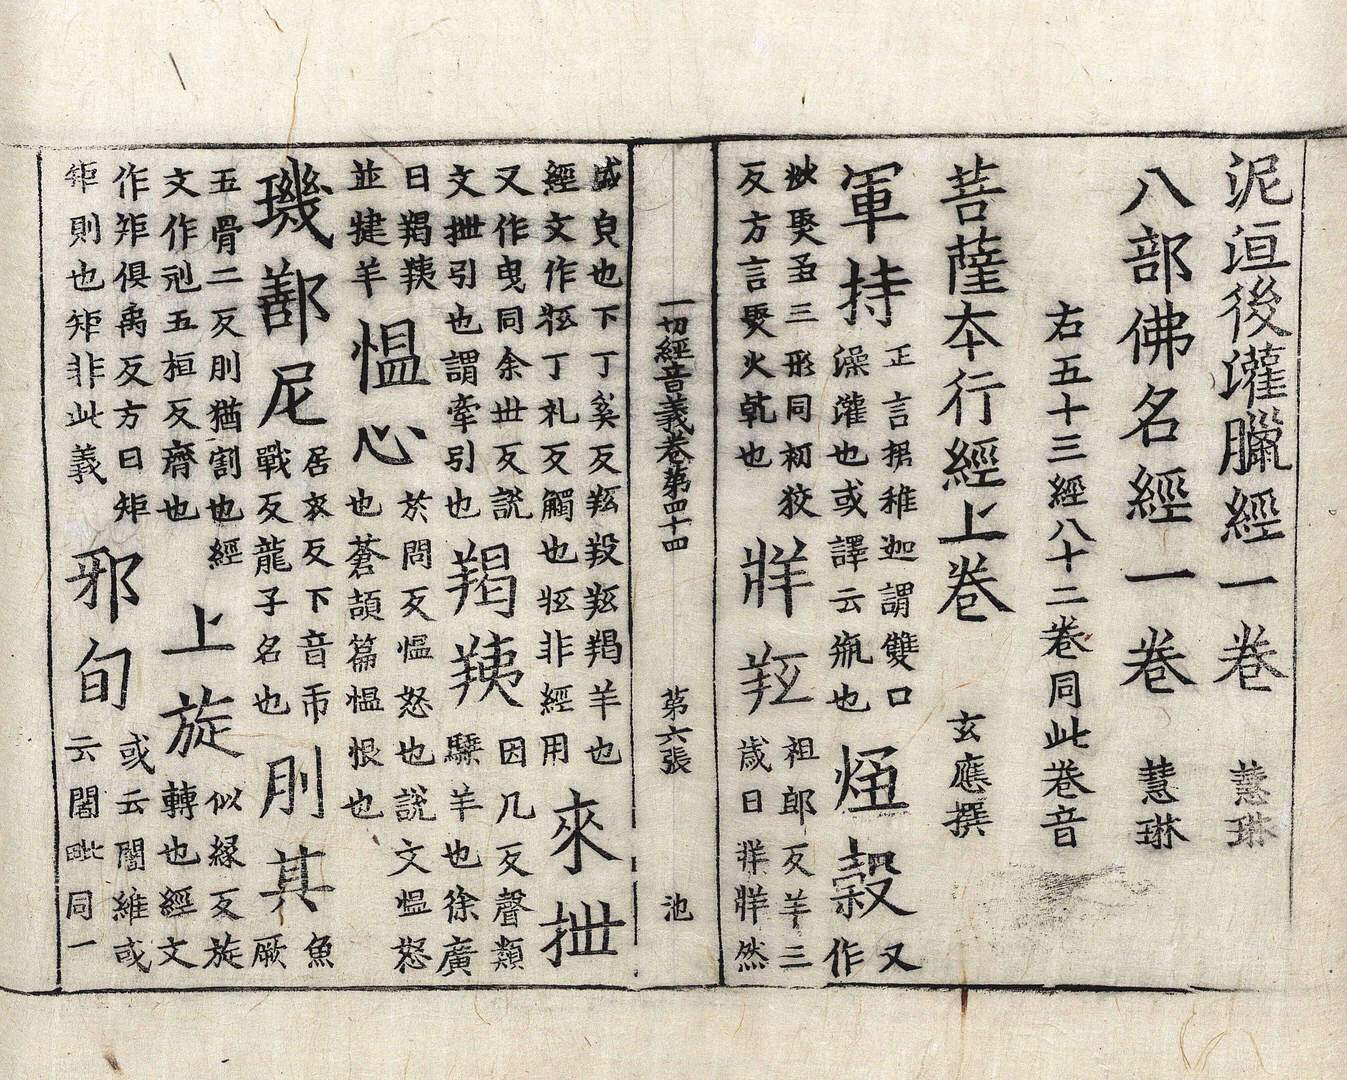 泥洹後灌臘經一卷 慧琳
八部佛名經一卷 慧琳
右五十三經八十二卷同此卷音
菩薩本行經上卷 玄應撰
軍持 正言捃稚迦謂雙口澡灌也或譯云瓶也 穀 又作
三形同初狡反方言㷅火乾也 牂羝 祖郎反羊三歲曰牂牂然
一切經音義卷第四十四 第六張 池
盛皃也下丁奚反羝羖羝羯羊也經文作牴丁礼反觸也牴非經用 來抴
又作曳同余世反說文抴引也謂牽引也 羯羠 因几反聲類騬羊也徐廣
曰羯羠並犍羊 慍心 於問反慍怒也說文慍怒也蒼頡篇慍恨也
璣鄯尼 居衣反下音帀戰反龍子名也 刖其 魚厥
五骨二反刖猶割也經文作刓五桓反齊也 上旋 似緣反旋轉也經文
作矩俱禹反方曰矩矩則也矩非此義 邪旬 或云闍維或云闍毗同一